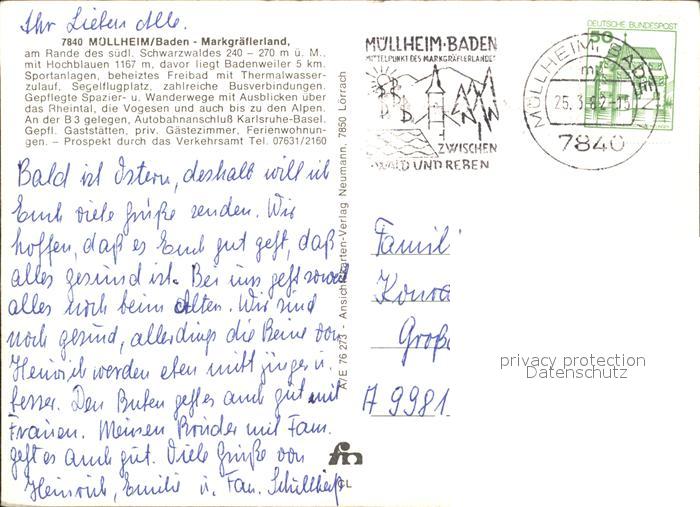 Ihr Lieben Alle.
7840 MÜLLHEIM/Baden - Markgräflerland,
am Rande des südl. Schwarzwaldes 240 – 270 m ü. M.,
mit Hochblauen 1167 m, davor liegt Badenweiler 5 km.
Sportanlagen, beheiztes Freibad mit Thermalwasser-
zulauf, Segelflugplatz, zahlreiche Busverbindungen.
Gepflegte Spazier- u. Wanderwege mit Ausblicken über
das Rheintal, die Vogesen und auch bis zu den Alpen.
An der B 3 gelegen, Autobahnanschluß Karlsruhe-Basel.
Gepfl. Gaststätten, priv. Gästezimmer, Ferienwohnun-
gen. – Prospekt durch das Verkehrsamt Tel. 07631/2160
Bald ist Ostern, deshalb will ich
Euch viele Grüße senden. Wir
hoffen, daß es Euch gut geht, daß
alles gesund ist. Bei uns geht soweit
alles noch beim Alten. Wir sind
noch gesund, allerdings die Beine von
Heinrich werden eben nicht jünger u.
besser. Den Buben geht es auch gut mit
Frauen. Meinen Bruder mit Fam.
geht es auch gut. Viele Grüße von
Heinrich, Emilie u. Fam.
A/E 76 273 - Ansichtskarten-Verlag Neumann, 7850 Lörrach
fm
MÜLLHEIM·BADEN
MITTELPUNKT DES MARKGRÄFLERLANDES
ZWISCHEN
WALD UND REBEN
DEUTSCHE BUNDESPOST
50
MÜLLHEIM, BADEN
25.3.82-15
7840
Famil
Konra
Große
A 9981
privacy protection
Datenschutz